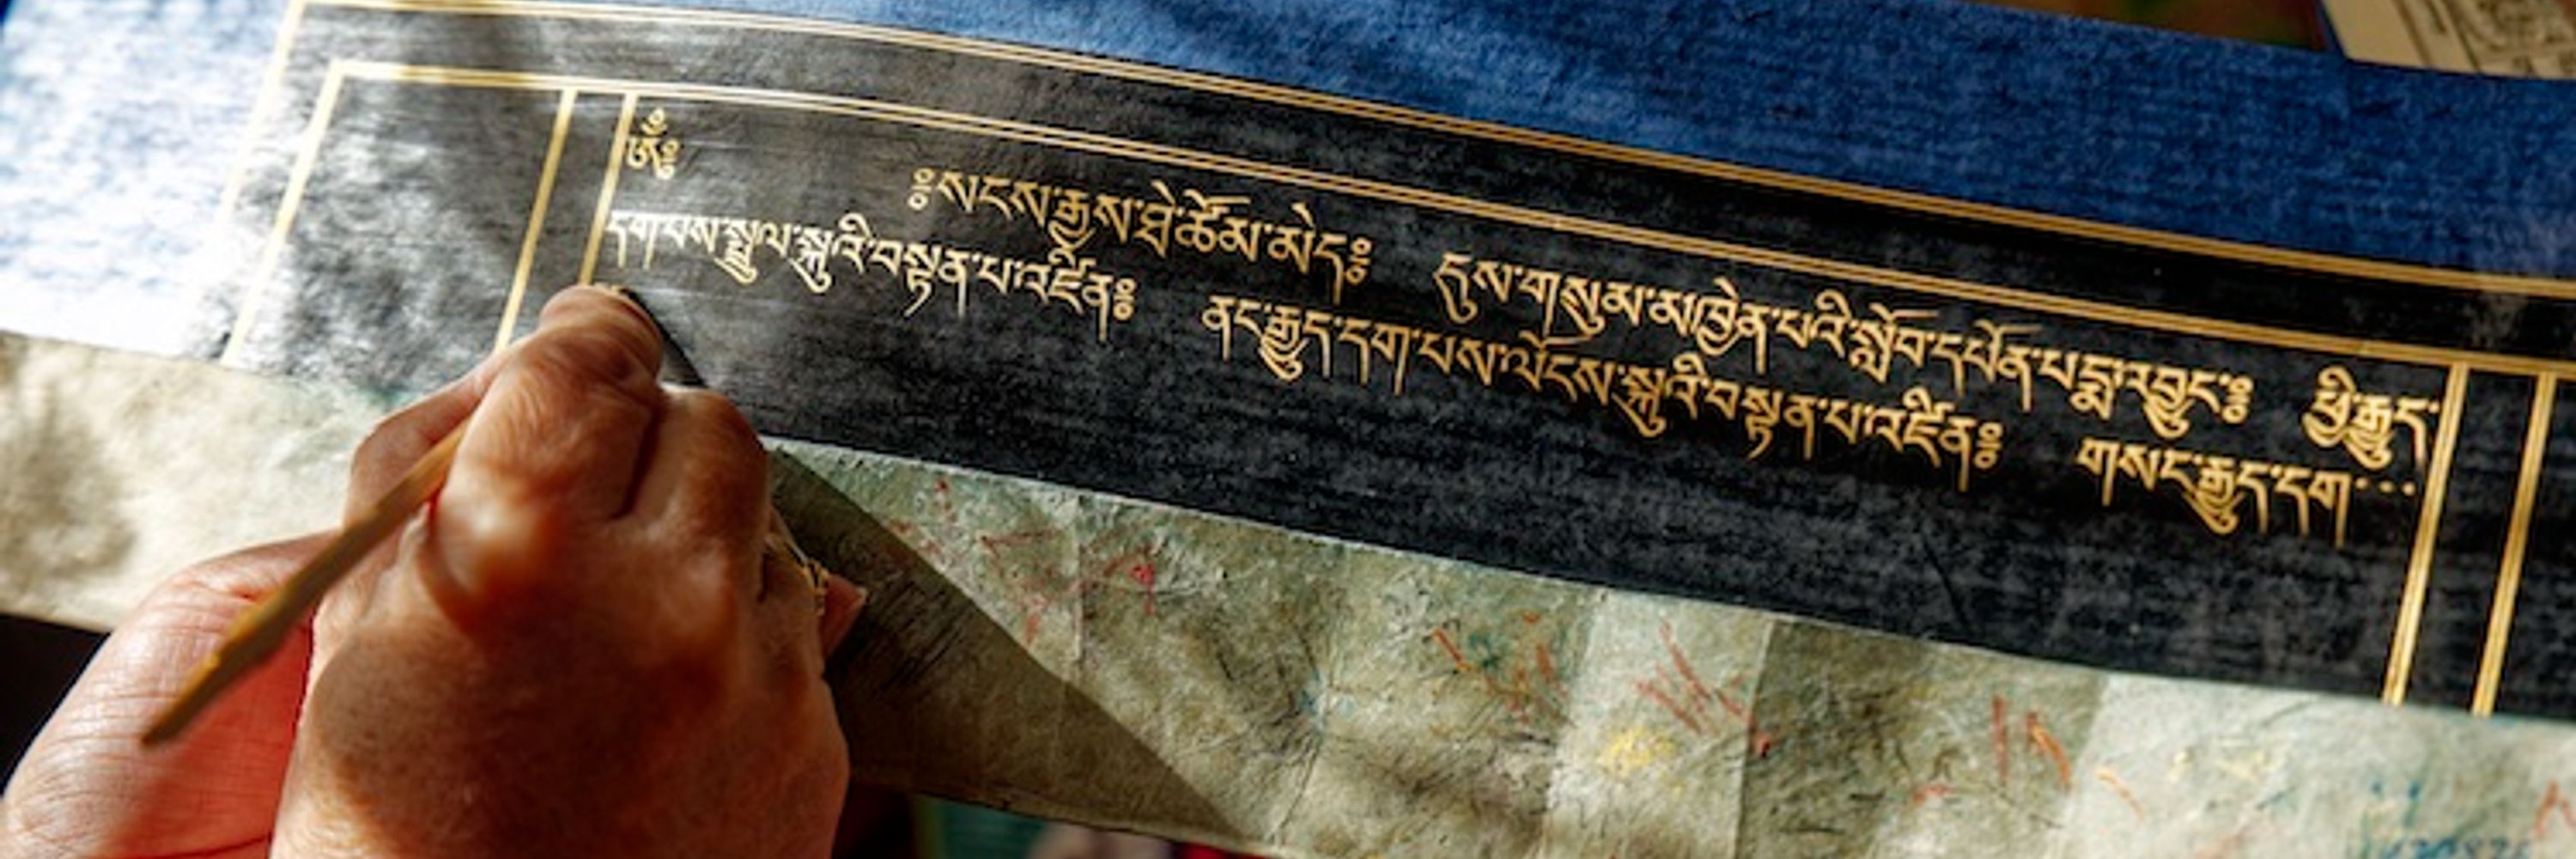 ཨོཾ༔ ༔སངས་རྒྱས་ཐེ་ཚོམ་མེད༔ དུས་གསུམ་མཁྱེན་པའི་སློབ་དཔོན་པདྨ་འབྱུང༔ ཕྱི་རྒྱུད་
དག་པས་སྤྲུལ་སྐུའི་བསྟན་པ་འཛིན༔ ནང་རྒྱུད་དག་པས་ལོངས་སྐུའི་བསྟན་པ་འཛིན༔ གསང་རྒྱུད་དག་་་